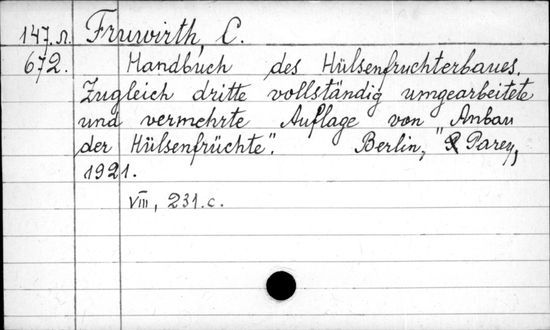 147.л. Fruwirth, C.
672. Handbuch des Hülsenfruchterbaues.
Zugleich dritte vollständig umgearbeitete
und vermehrte Auflage von "Anbau
der Hülsenfrüchte". Berlin, P Parey,
1921.
VIII, 231.c.